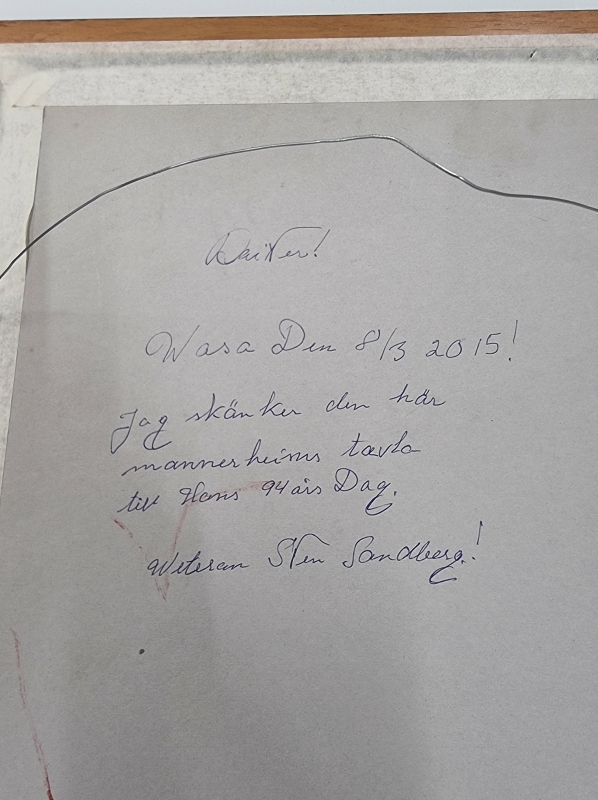 Wasa Den 8/3 2015!
Jag skänker den här
mannerheims tavla
till Hans 94 års Dag.
Weteran Sten Sandberg!